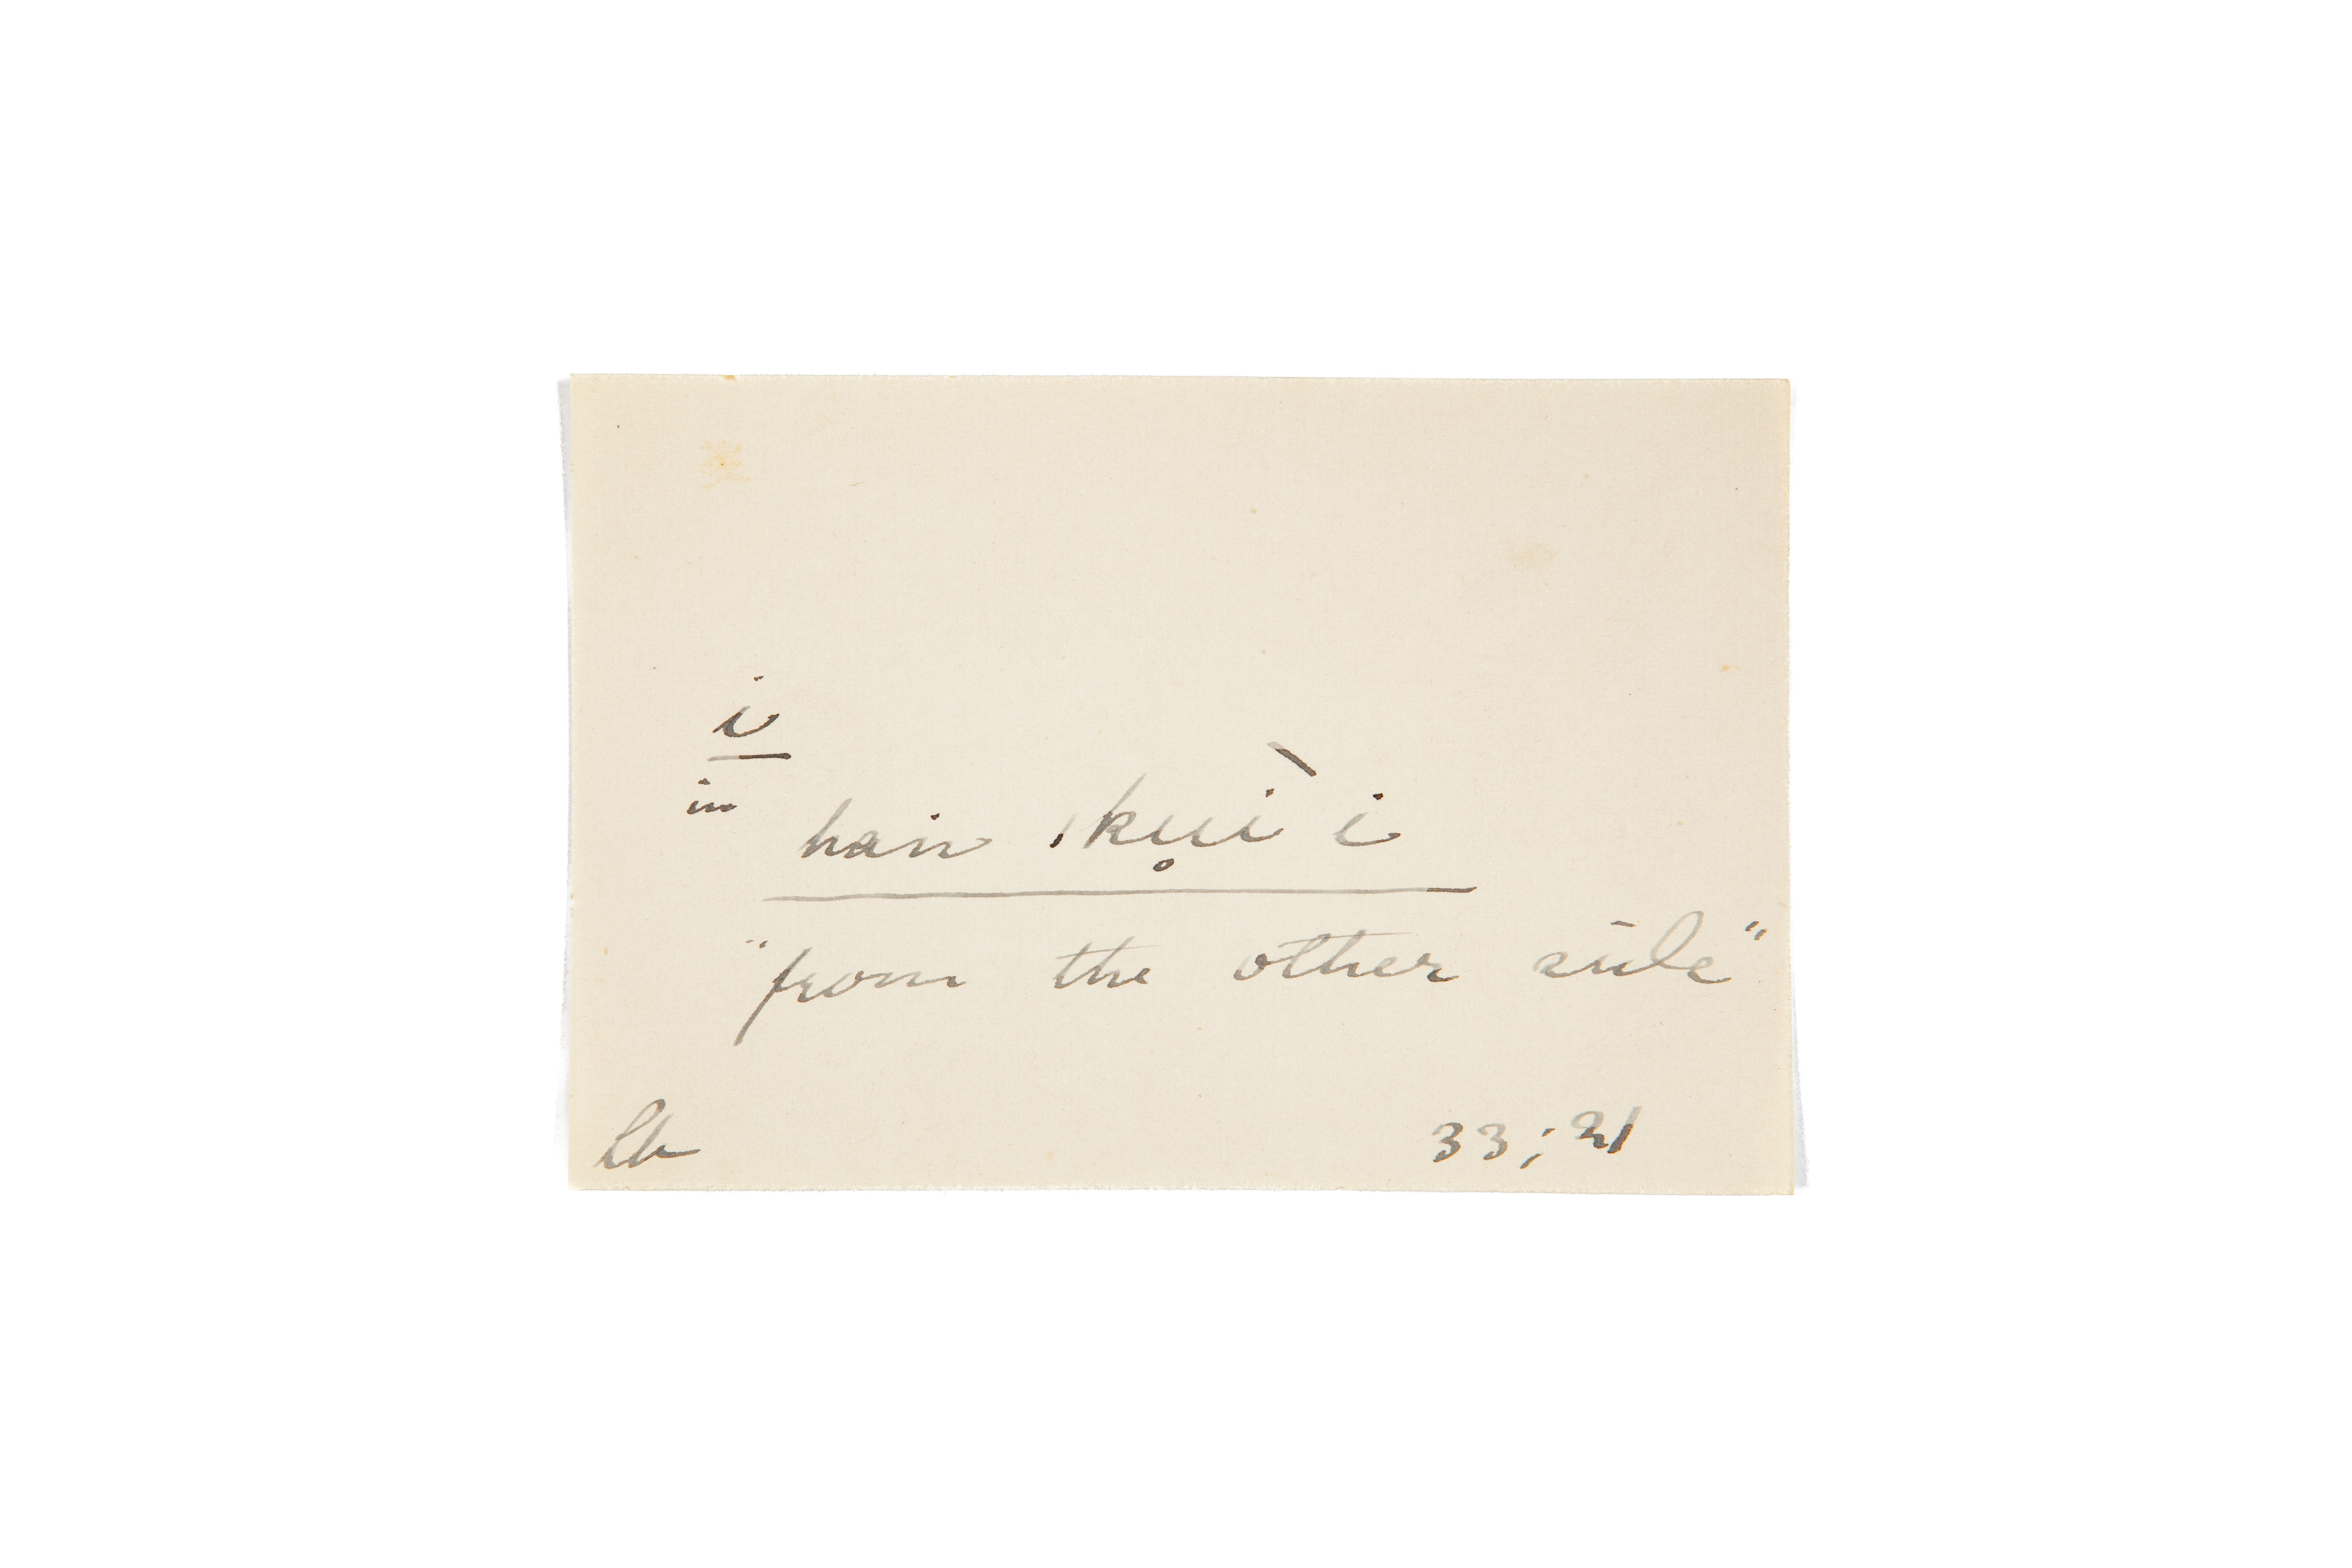 i
in
hain ,kuì̥ i
"from the other side"
Lb
33; 21